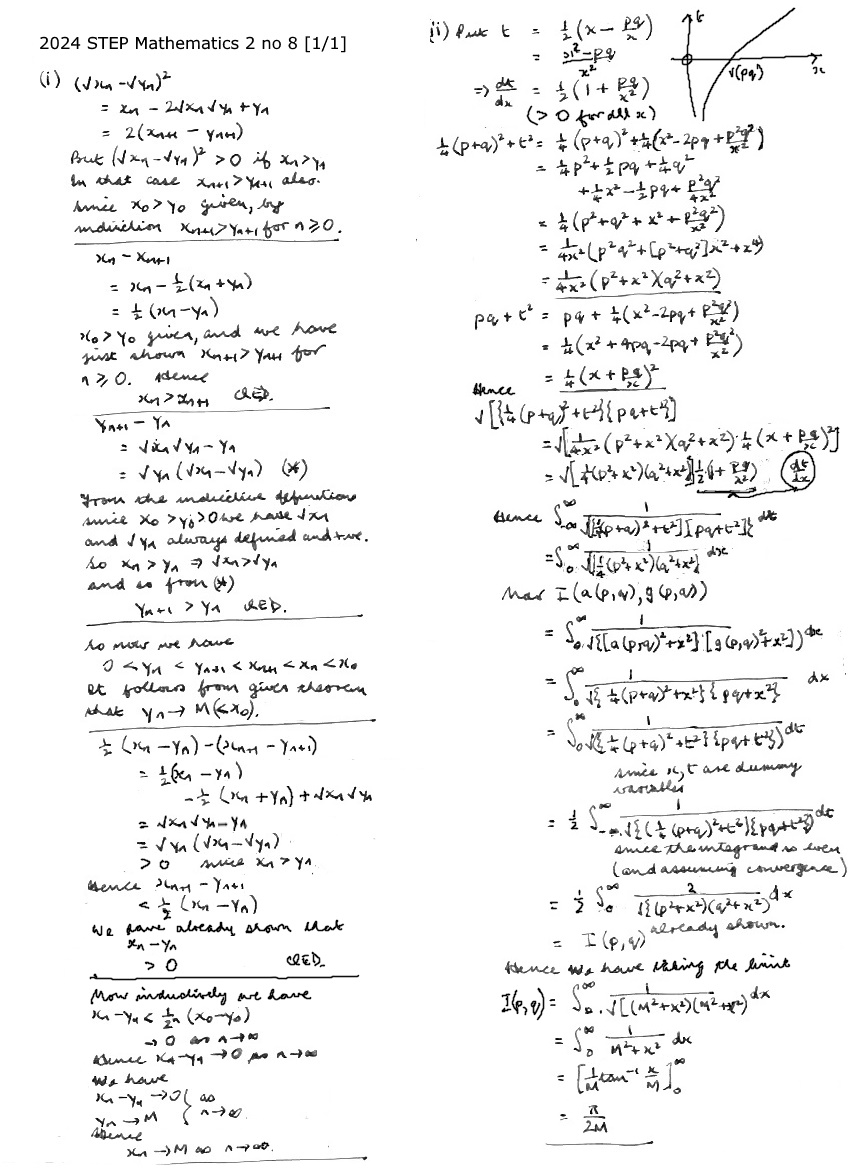 2024 STEP Mathematics 2 no 8 [1/1]
(i) (√xₙ - √yₙ)²
= xₙ - 2√xₙ√yₙ + yₙ
= 2(xₙ₊₁ - yₙ₊₁)
But (√xₙ - √yₙ)² > 0 if xₙ > yₙ
In that case xₙ₊₁ > yₙ₊₁ also.
Since x₀ > y₀ given, by
induction xₙ₊₁ > yₙ₊₁ for n ≥ 0.
xₙ - xₙ₊₁
= xₙ - ½(xₙ + yₙ)
= ½(xₙ - yₙ)
x₀ > y₀ given, and we have
just shown xₙ₊₁ > yₙ₊₁ for
n ≥ 0. Hence
xₙ > xₙ₊₁ QED.
yₙ₊₁ - yₙ
= √xₙ√yₙ - yₙ
= √yₙ(√xₙ - √yₙ) (*)
From the inductive definitions
since x₀ > y₀ > 0 we have √xₙ
and √yₙ always defined and +ve.
So xₙ > yₙ ⇒ √xₙ > √yₙ
and so from (*)
yₙ₊₁ > yₙ QED.
So now we have
0 < yₙ < yₙ₊₁ < xₙ₊₁ < xₙ < x₀
It follows from given theorem
that yₙ → M (< x₀).
½(xₙ - yₙ) - (xₙ₊₁ - yₙ₊₁)
= ½(xₙ - yₙ)
- ½(xₙ + yₙ) + √xₙ√yₙ
= √xₙ√yₙ - yₙ
= √yₙ(√xₙ - √yₙ)
> 0 since xₙ > yₙ
Hence xₙ₊₁ - yₙ₊₁
< ½(xₙ - yₙ)
We have already shown that
xₙ - yₙ
> 0 QED.
Now inductively we have
xₙ - yₙ < 1/2ⁿ (x₀ - y₀)
→ 0 as n → ∞
Hence xₙ - yₙ → 0 as n → ∞
We have
xₙ - yₙ → 0 } as
yₙ → M } n → ∞.
Hence
xₙ → M as n → ∞.
(ii) Put t = ½(x - pq/x)
= x² - pq / x²
⇒ dt/dx = ½(1 + pq/x²)
(> 0 for all x)
t
√(pq)
x
¼(p+q)² + t² = ¼(p+q)² + ¼(x² - 2pq + p²q²/x²)
= ¼p² + ½pq + ¼q²
+ ¼x² - ½pq + p²q²/4x²
= ¼(p² + q² + x² + p²q²/x²)
= 1/4x² (p²q² + [p² + q²]x² + x⁴)
= 1/4x² (p² + x²)(q² + x²)
pq + t² = pq + ¼(x² - 2pq + p²q²/x²)
= ¼(x² + 4pq - 2pq + p²q²/x²)
= ¼(x + pq/x)²
Hence
√[{¼(p+q)² + t²}{pq + t²}]
= √[1/4x² (p² + x²)(q² + x²) · ¼(x + pq/x)²]
= √[¼(p² + x²)(q² + x²)] ½(1 + pq/x²) dt/dx
Hence ∫₋∞^∞ 1/√{[¼(p+q)² + t²][pq + t²]} dt
= ∫₀^∞ 1/√{¼(p² + x²)(q² + x²)} dx
Now I(a(p,q), g(p,q))
= ∫₀^∞ 1/√{[a(p,q)² + x²]·[g(p,q)² + x²]} dx
= ∫₀^∞ 1/√{{¼(p+q)² + x²}{pq + x²}} dx
= ∫₀^∞ 1/√{{¼(p+q)² + t²}{pq + t²}} dt
since x, t are dummy
variables
= ½ ∫₋∞^∞ 1/√{{¼(p+q)² + t²}{pq + t²}} dt
since the integrand is even
(and assuming convergence)
= ½ ∫₀^∞ 2/√{(p² + x²)(q² + x²)} dx
already shown.
= I(p,q)
Hence we have taking the limit
I(p,q) = ∫₀^∞ 1/√[(M² + x²)(M² + x²)] dx
= ∫₀^∞ 1/(M² + x²) dx
= [1/M tan⁻¹ x/M]₀^∞
= π/2M